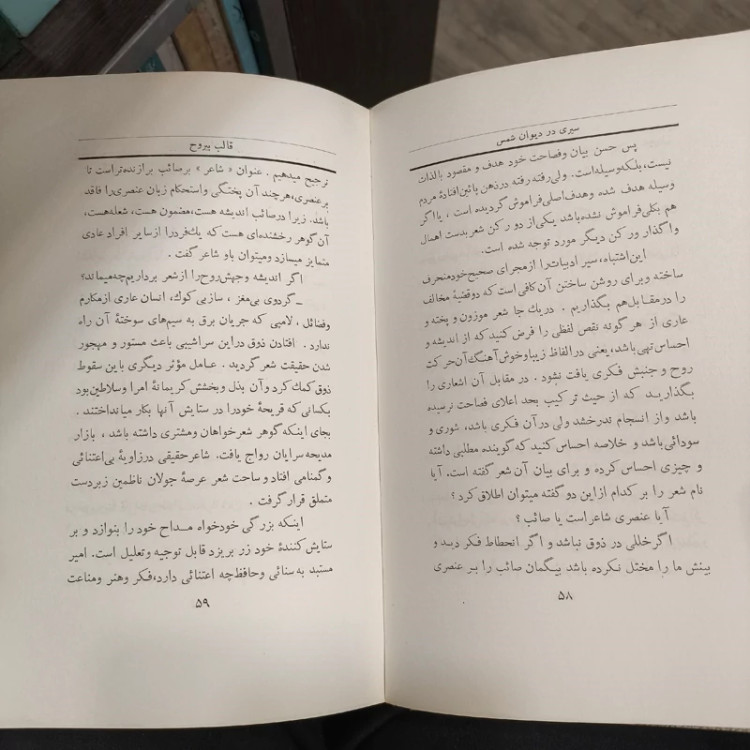 سیری در دیوان شمس
پس حسن بیان وفصاحت خود هدف و مقصود بالذات
نیست،بلکه وسیله است. ولی رفته رفته در ذهن پائین افتادهٔ مردم
وسیله هدف شده وهدف اصلی فراموش گردیده است ، یا اگر
هم بکلی فراموش نشده باشد یکی از دو رکن شعر بدست اهمال
واگذار ورکن دیگر مورد توجه شده است.
این اشتباه، سیر ادبیات را از مجرای صحیح خود منحرف
ساخته و برای روشن ساختن آن کافی است که دو قضیهٔ مخالف
را در مقابل هم بگذاریم . در یك جا شعر موزون و پخته و
عاری از هر گونه نقص لفظی را فرض کنید که از اندیشه و
احساس تهی باشد، یعنی در الفاظ زیبا و خوش آهنگ آن حرکت
روح و جنبش فکری یافت نشود . در مقابل آن اشعاری را
بگذارید که از حیث ترکیب بحد اعلای فصاحت نرسیده
باشد واز انسجام ندرخشد ولی در آن فکری باشد، شوری و
سودائی باشد و خلاصه احساس کنید که گوینده مطلبی داشته
و چیزی احساس کرده و برای بیان آن شعر گفته است. آیا
نام شعر را بر کدام از این دو گفته میتوان اطلاق کرد؟
آیا عنصری شاعر است یا صائب ؟
اگر خللی در ذوق نباشد و اگر انحطاط فکر دید و
بینش ما را مختل نکرده باشد بیگمان صائب را بر عنصری
۵۸
قالب بیروح
ترجیح میدهیم . عنوان « شاعر » بر صائب برازنده تر است تا
بر عنصری، هر چند آن پختگی واستحکام زبان عنصری را فاقد
باشد. زیرا در صائب اندیشه هست، مضمون هست، شعله هست،
آن گوهر رخشنده ای هست که یك فرد را از سایر افراد عادی
متمایز میسازد ومیتوان باو شاعر گفت .
اگر اندیشه وجهش روح را از شعر برداریم چه میماند؟
ـ گردوی بی مغز ، ساز بی کوك، انسان عاری از مکارم
وفضائل ، لامپی که جریان برق به سیم‌های سوختهٔ آن راه
ندارد . افتادن ذوق در این سراشیبی باعث مستور و مهجور
شدن حقیقت شعر گردید . عامل مؤثر دیگری باین سقوط
ذوق کمك کرد وآن بذل وبخشش کریمانهٔ امرا وسلاطین بود
بکسانی که قریحهٔ خود را در ستایش آنها بکار میانداختند .
بجای اینکه گوهر شعر خواهان ومشتری داشته باشد ، بازار
مدیحه سرایان رواج یافت. شاعر حقیقی در زاویهٔ بی اعتنائی
و گمنامی افتاد و ساحت شعر عرصهٔ جولان ناظمین زبردست
متملق قرار گرفت .
اینکه بزرگی خودخواه مداح خود را بنوازد و بر
ستایش کنندهٔ خود زر بریزد قابل توجیه وتعلیل است. امیر
مستبد به سنائی وحافظ چه اعتنائی دارد، فکر وهنر ومناعت
۵۹